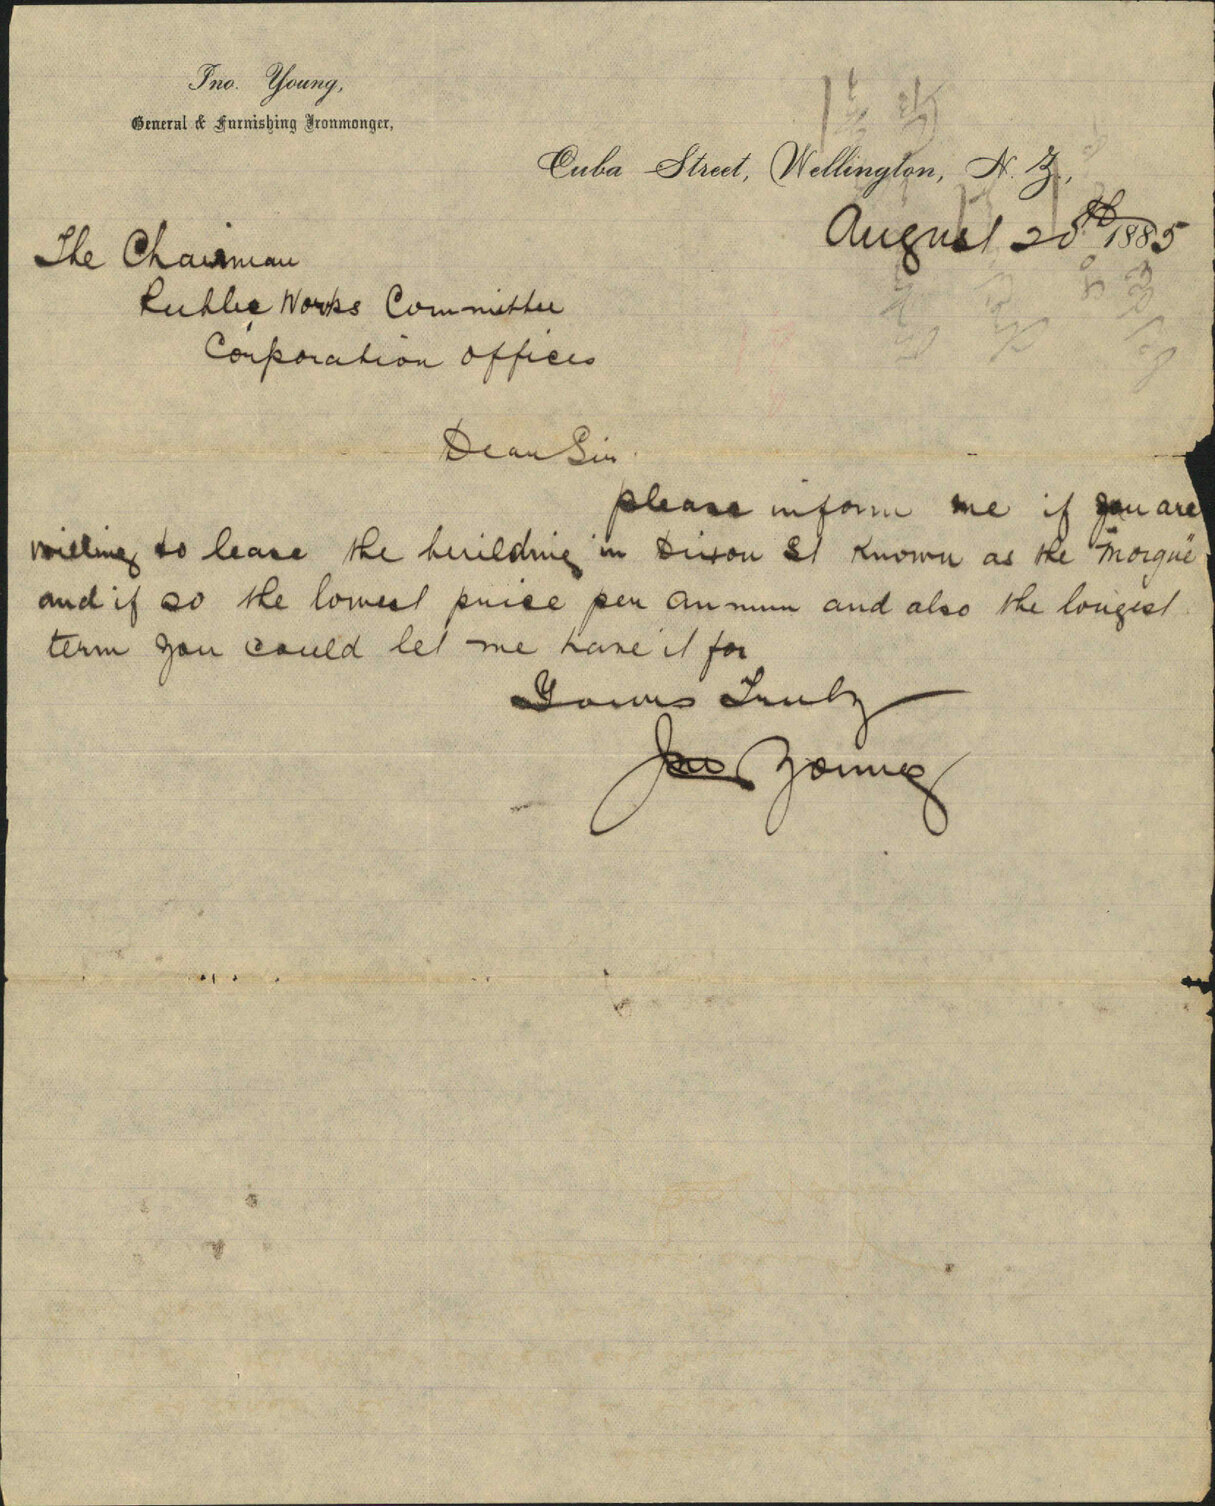 Jno. Young,
General & Furnishing Ironmonger,
Cuba Street, Wellington, N.Z.,
August 20th 1885
The Chairman
Public Works Committee
Corporation Offices
Dear Sir
please inform me if you are
willing to lease the building in Dixon St known as the "Morgue"
and if so the lowest price per annum and also the longest
term you could let me have it for
Yours Truly
Jno Young